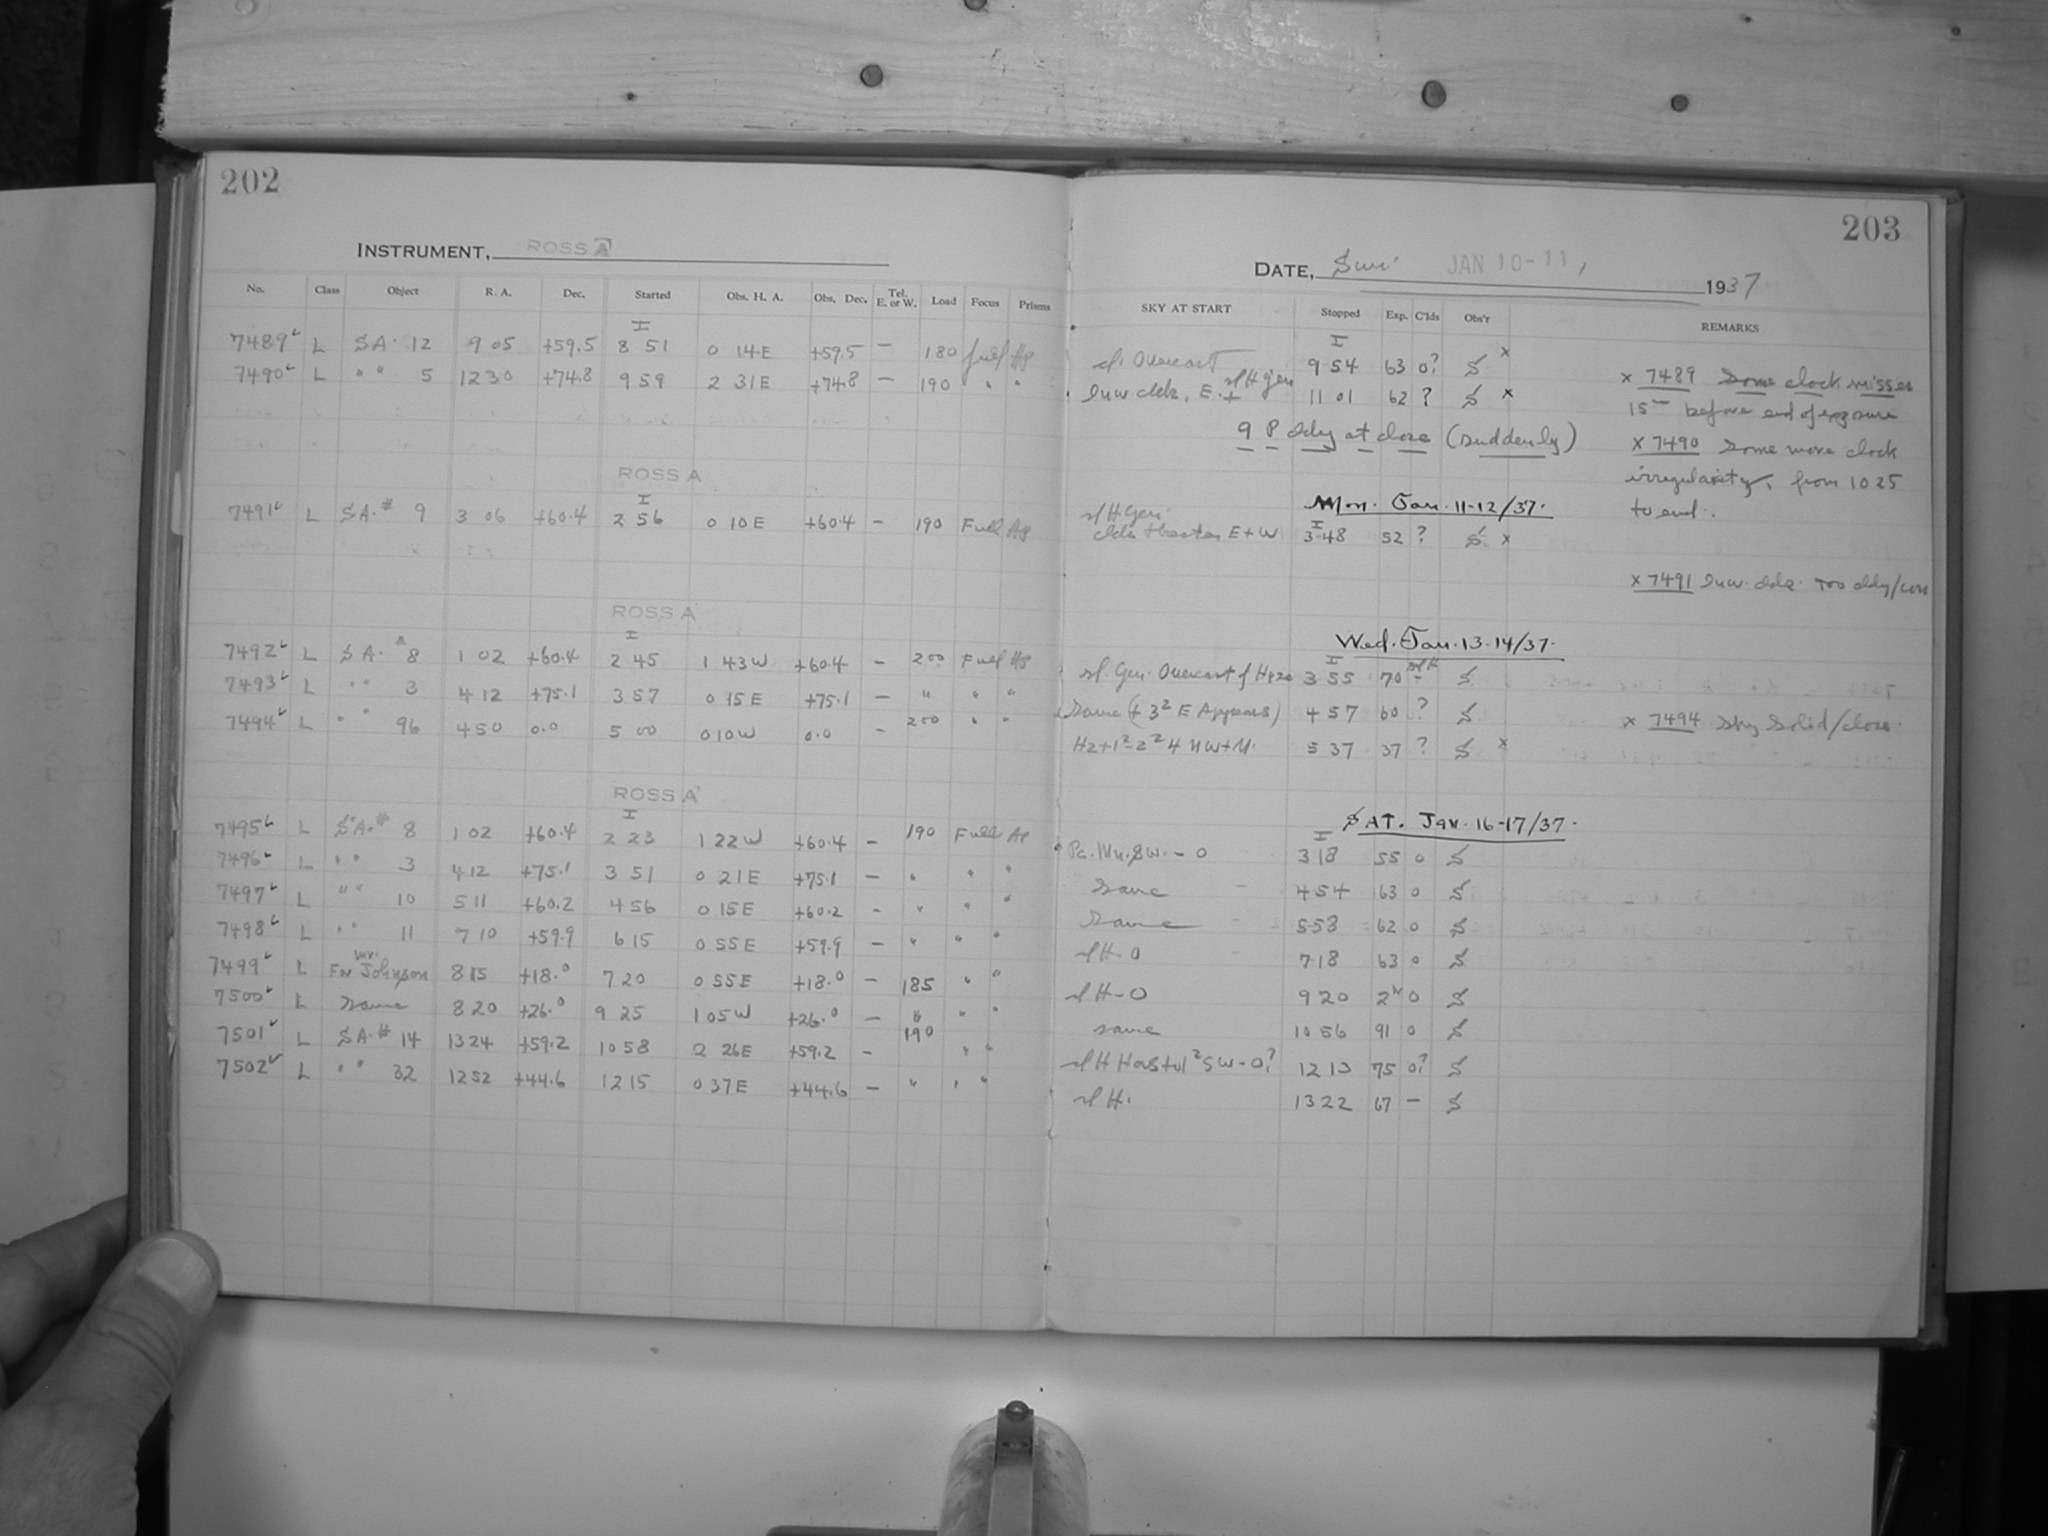 202
INSTRUMENT, ROSS A
No. Class Object R. A. Dec. Started Obs. H. A. Obs. Dec. Tel. E. or W. Load Focus Prisms
I
7489 L SA. 12 9 05 +59.5 8 51 0 14 E +59.5 – 180 full
7490 L " " 5 12 30 +74.8 9 59 2 31 E +74.8 – 190 " "
ROSS A
I
7491 L SA. # 9 3 06 +60.4 2 56 0 10 E +60.4 – 190 Full Ap
ROSS A
I
7492 L SA. # 8 1 02 +60.4 2 45 1 43 W +60.4 – 200 Full Ap
7493 L " " 3 4 12 +75.1 3 57 0 15 E +75.1 – " " "
7494 L " " 96 4 50 0.0 5 00 0 10 W 0.0 – 200 " "
ROSS A
I
7495 L SA. # 8 1 02 +60.4 2 23 1 22 W +60.4 – 190 Full Ap
7496 L " " 3 4 12 +75.1 3 51 0 21 E +75.1 – " " "
7497 L " " 10 5 11 +60.2 4 56 0 15 E +60.2 – " " "
7498 L " " 11 7 10 +59.9 6 15 0 55 E +59.9 – " " "
7499 L For Mr. Johnson 8 15 +18.0 7 20 0 55 E +18.0 – 185 " "
7500 L Same 8 20 +26.0 9 25 1 05 W +26.0 – " " "
7501 L SA. # 14 13 24 +59.2 10 58 2 26 E +59.2 – 190 " "
7502 L " " 32 12 52 +44.6 12 15 0 37 E +44.6 – " " "
203
DATE, Sun. JAN 10-11, 1937
SKY AT START Stopped Exp. C'lds Obs'r REMARKS
I
sl. Overcast 9 54 63 0? S x
clds, E. + sl H gen 11 01 62 ? S x
9 P cldy at close (suddenly)
x 7489 Some clock misses
15m before end of exposure
x 7490 Some more clock
irregularity, from 10 25
to end.
Mon. Jan. 11-12/37.
I
sl H Gen.
clds threaten E + W 3 48 52 ? S x
x 7491 clds. Too cldy
Wed. Jan. 13-14/37.
I
sl. Gen. Overcast of 3 55 70 – sl H S
Same (+ 3² E Appears) 4 57 60 ? S
Hz + 1²-2² 4 NW + N. 5 37 37 ? S x
x 7494 Sky Solid/close.
SAT. Jan. 16-17/37.
I
SW. – 0 3 18 55 0 S
Same 4 54 63 0 S
Same 5 58 62 0 S
sl H – 0 7 18 63 0 S
sl H – 0 9 20 2h 0 S
same 10 56 91 0 S
sl H SW – 0? 12 13 75 0? S
sl H. 13 22 67 – S